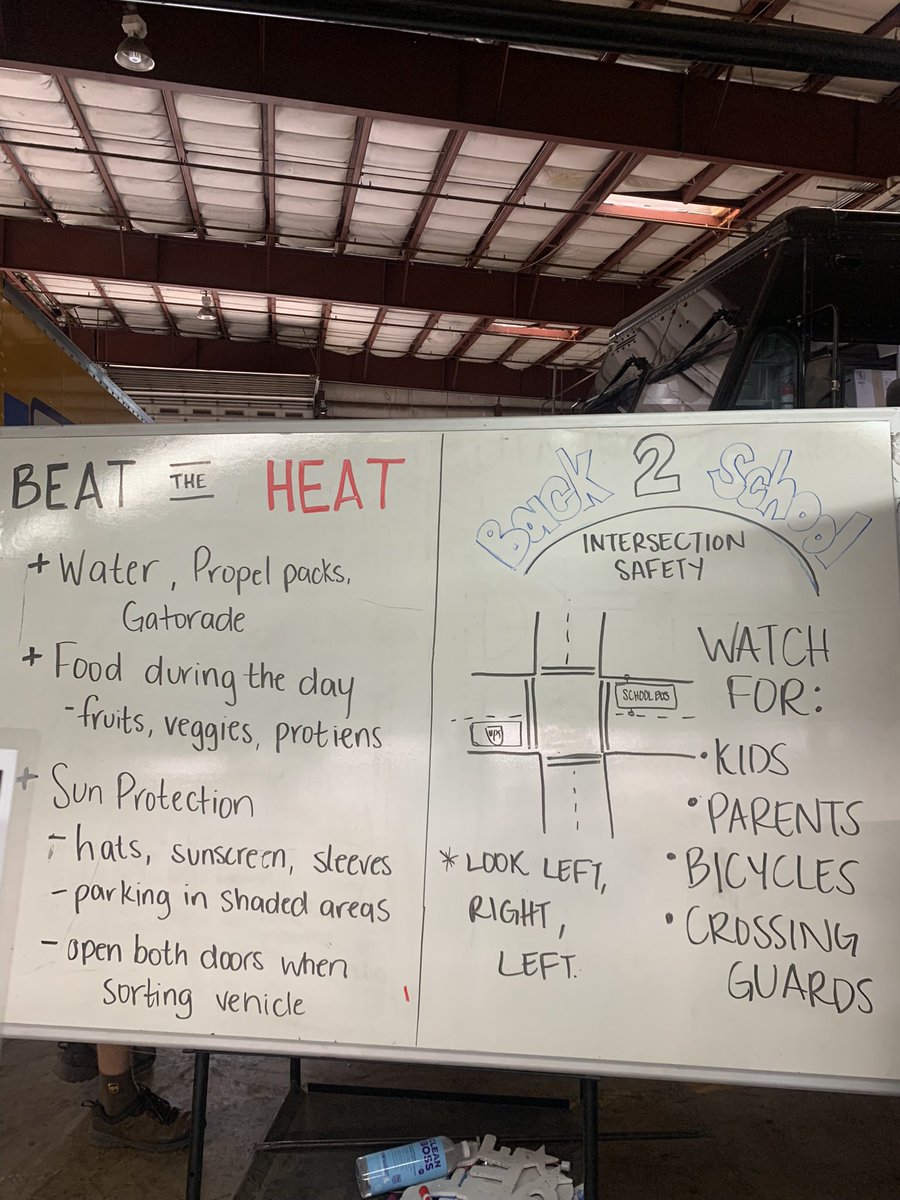 BEAT THE HEAT
+ Water, Propel packs,
Gatorade
+ Food during the day
- fruits, veggies, protiens
+ Sun Protection
- hats, sunscreen, sleeves
- parking in shaded areas
- open both doors when
sorting vehicle
Back 2 School
INTERSECTION
SAFETY
SCHOOL BUS
UPS
* LOOK LEFT,
RIGHT,
LEFT.
WATCH
FOR:
• KIDS
• PARENTS
• BICYCLES
• CROSSING
GUARDS
ups
CLEAN
BOSS